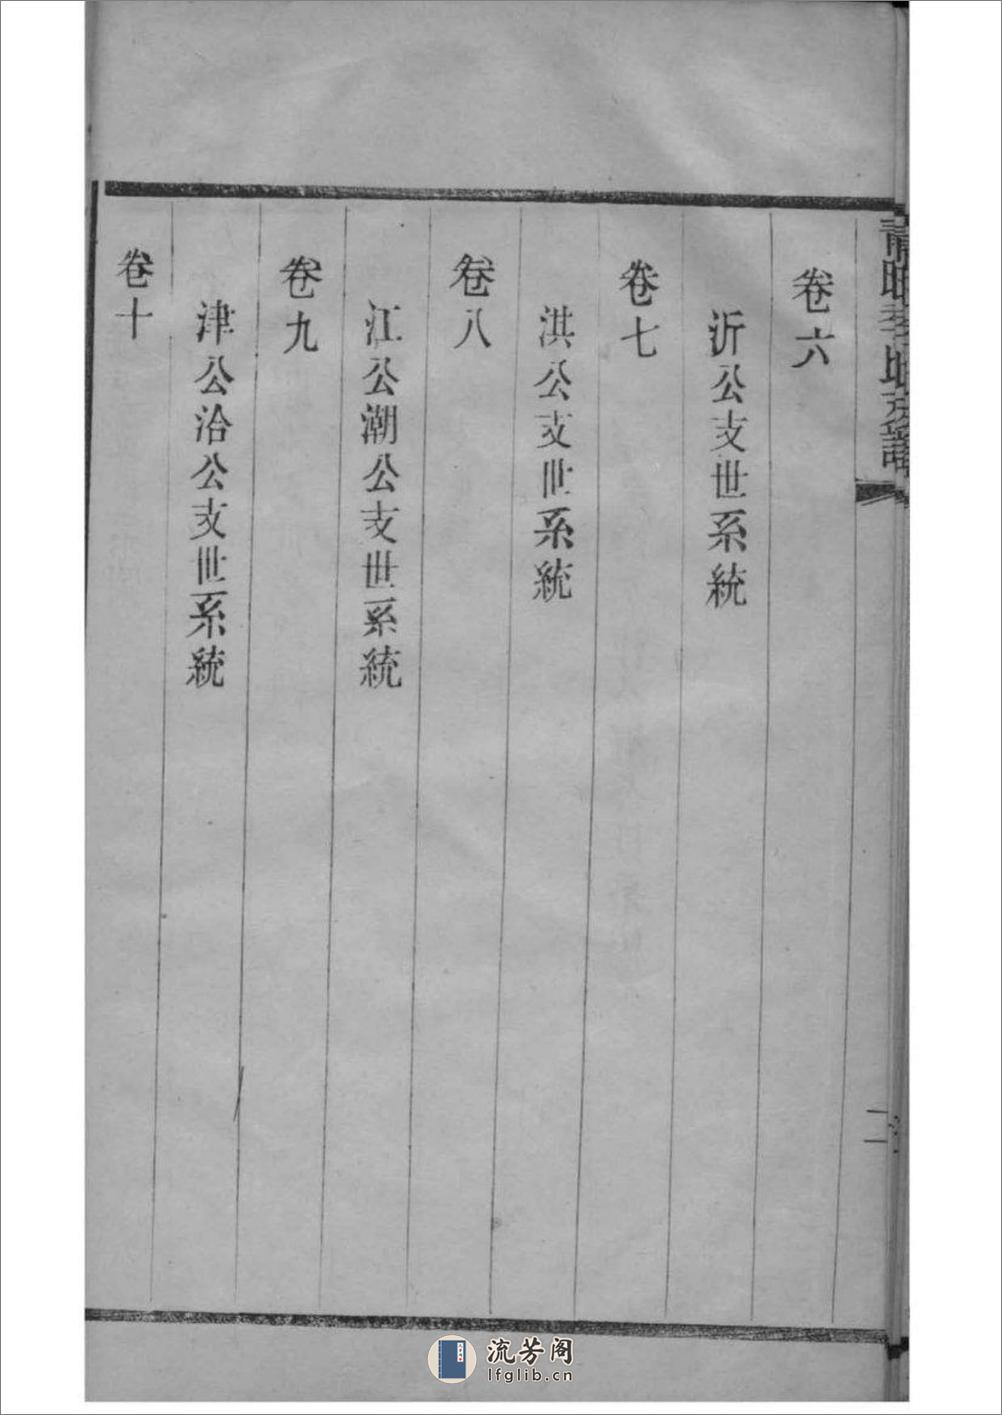 卷六
沂公支世系統
卷七
洪公支世系統
卷八
江公潮公支世系統
卷九
津公洽公支世系統
卷十
二
流芳阁
lfglib.cn